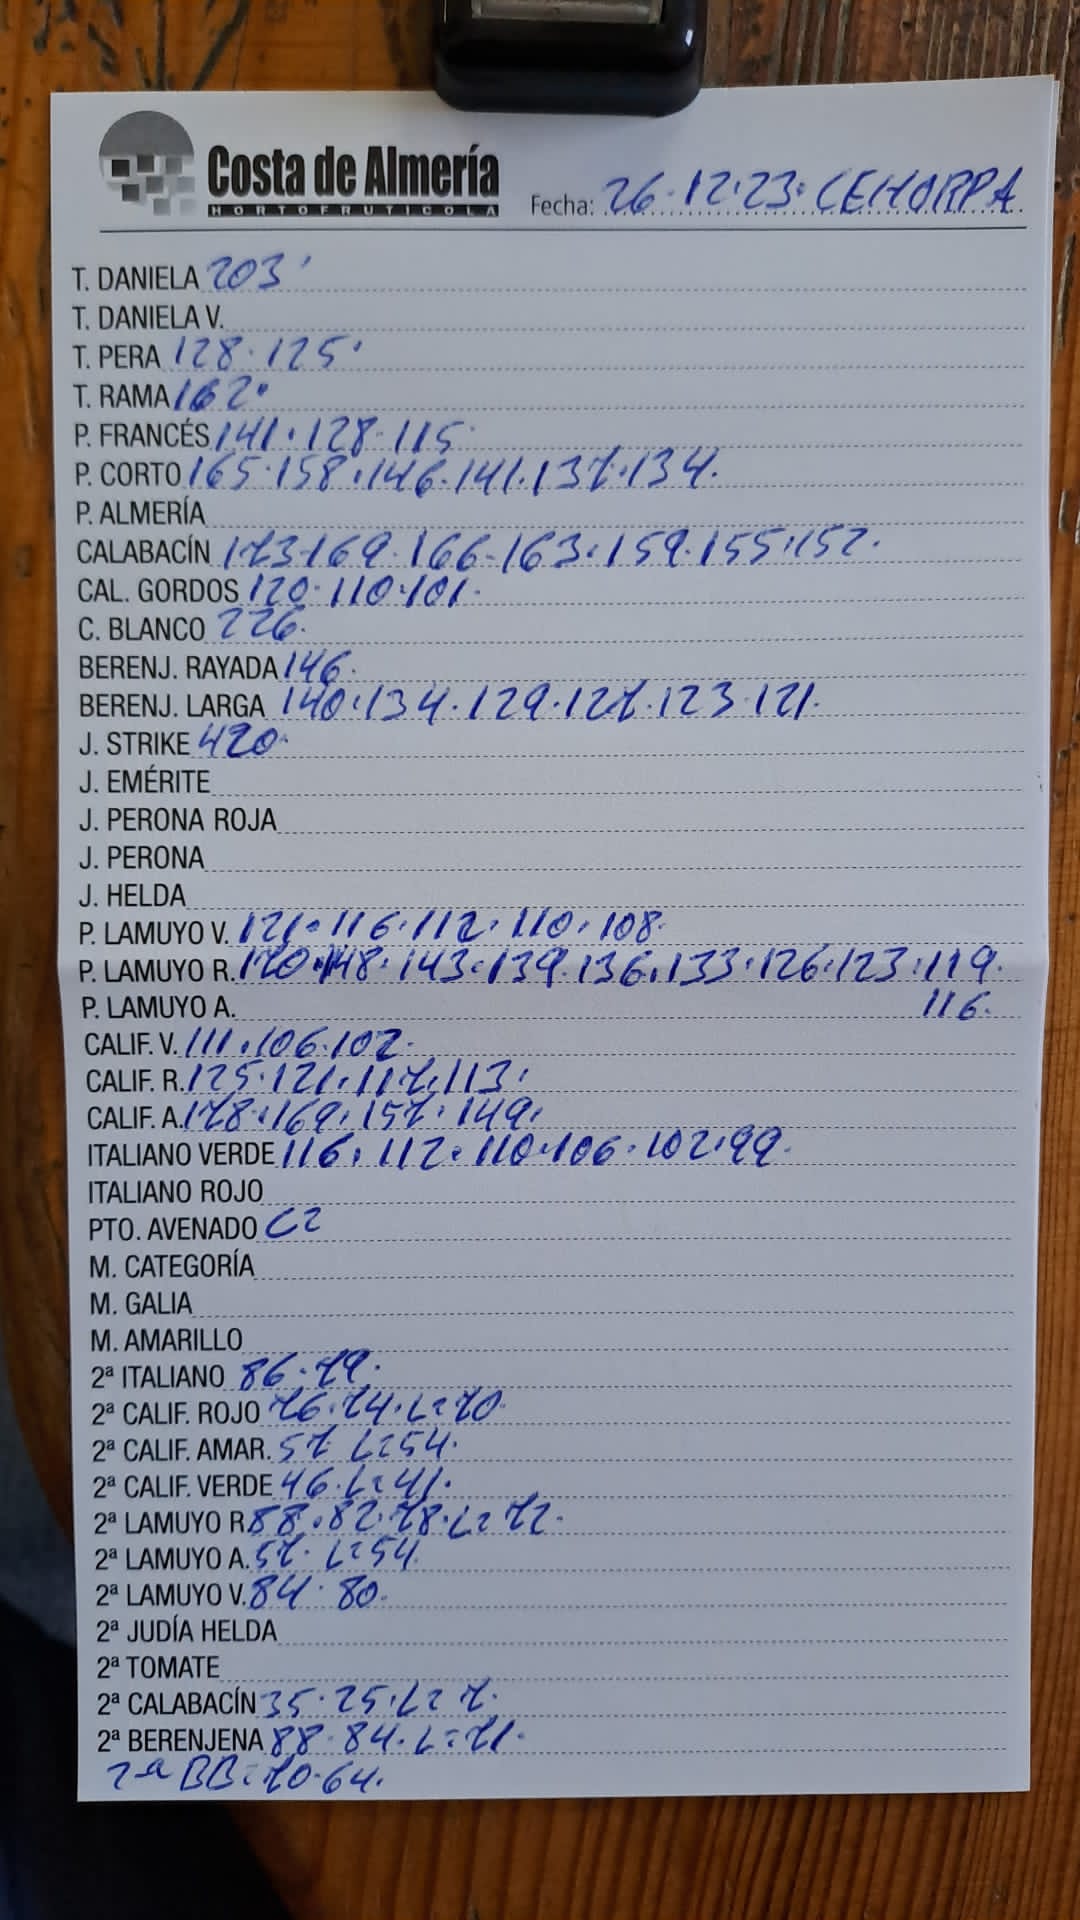 Costa de Almería
HORTOFRUTICOLA
Fecha: 26.12.23. CEHORPA
T. DANIELA 203.
T. DANIELA V.
T. PERA 128.125.
T. RAMA 162.
P. FRANCÉS 141.128.115.
P. CORTO 165.158.146.141.137.134.
P. ALMERÍA
CALABACÍN 173.169.166.163.159.155.152.
CAL. GORDOS 120.110.101.
C. BLANCO 226.
BERENJ. RAYADA 146.
BERENJ. LARGA 140.134.129.127.123.121.
J. STRIKE 420.
J. EMÉRITE
J. PERONA ROJA
J. PERONA
J. HELDA
P. LAMUYO V. 121.116.112.110.108.
P. LAMUYO R. 148.143.139.136.133.126.123.119.
P. LAMUYO A. 116.
CALIF. V. 111.106.102.
CALIF. R. 125.121.117.113.
CALIF. A. 178.169.157.149.
ITALIANO VERDE 116.112.110.106.102.99.
ITALIANO ROJO
PTO. AVENADO C2
M. CATEGORÍA
M. GALIA
M. AMARILLO
2ª ITALIANO 86.79.
2ª CALIF. ROJO 76.74.L=70.
2ª CALIF. AMAR. 57 L=54.
2ª CALIF. VERDE 46.L=41.
2ª LAMUYO R. 88.82.78.L=72.
2ª LAMUYO A. 57. L=54.
2ª LAMUYO V. 84.80.
2ª JUDÍA HELDA
2ª TOMATE
2ª CALABACÍN 35.25.L=7.
2ª BERENJENA 88.84.L=71.
2ª BB=70.64.